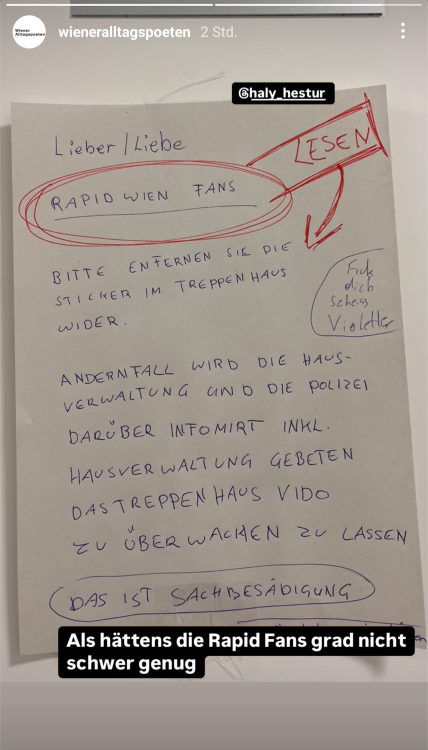 Wiener
Alltagspoeten
wieneralltagspoeten 2 Std.
@haly_hestur
Lieber/Liebe
LESEN
RAPID WIEN FANS
BITTE ENFERNEN SIE DIE
STICKER IM TREPPENHAUS
WIDER.
Fick
dich
Scheiss
Violetter
ANDERNFALL WIRD DIE HAUS-
VERWALTUNG UND DIE POLIZEI
DARÜBER INFOMIRT INKL.
HAUSVERWALTUNG GEBETEN
DAS TREPPENHAUS VIDO
ZU ÜBERWACHEN ZU LASSEN
DAS IST SACHBESÄDIGUNG
Als hättens die Rapid Fans grad nicht
schwer genug